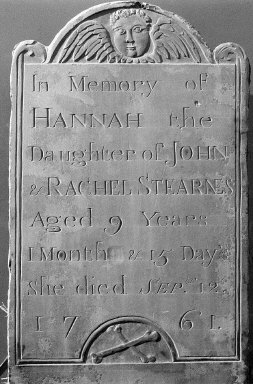 In Memory of
HANNAH the
Daughter of JOHN
& RACHEL STEARNS
Aged 9 Years
1 Month & 15 Days
She died SEPt. 12.
1761.